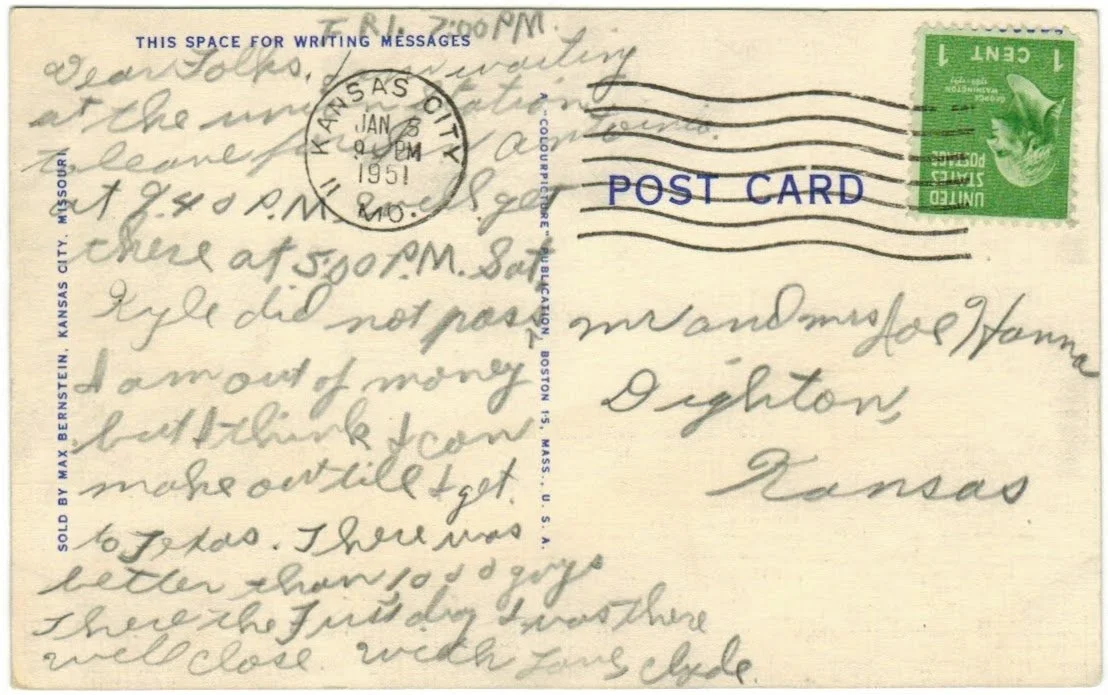 FRI. 7:00 PM.
THIS SPACE FOR WRITING MESSAGES
Dear Folks, I am waiting
at the union station
to leave for San Antonio.
at 9.40 P.M. I will get
there at 5:00 P.M. Sat.
Kyle did not pass
I am out of money
but I think I can
make out till I get
to Texas. There was
better than 1000 guys
there the First day I was there
will close. with Love, Clyde.
SOLD BY MAX BERNSTEIN, KANSAS CITY, MISSOURI
A "COLOURPICTURE" PUBLICATION, BOSTON 15, MASS., U. S. A.
KANSAS CITY
JAN 5
9 PM
1951
11
MO.
POST CARD
UNITED
STATES
POSTAGE
GEORGE
WASHINGTON
1 CENT 1
Mr and Mrs Joe Hanna
Dighton,
Kansas